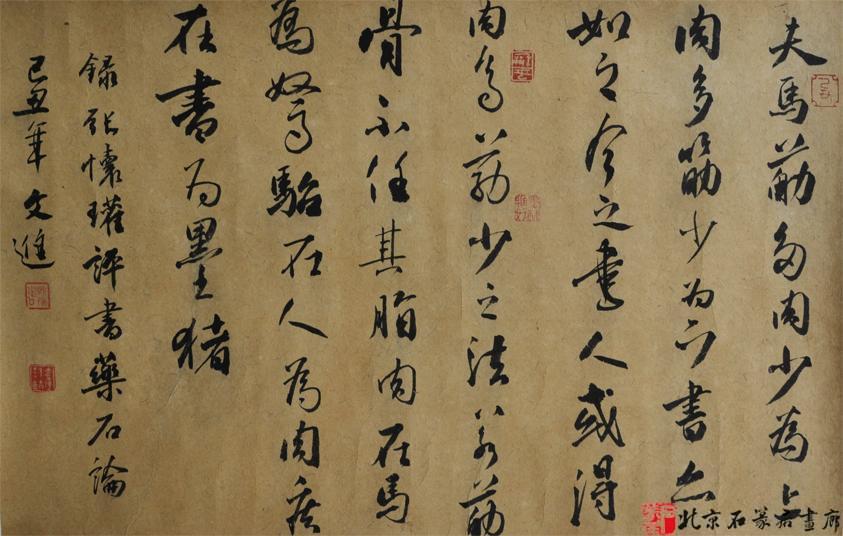 夫馬筋多肉少為上
肉多筋少為下書亦
如之今之書人或得
肉多筋少之法若筋
骨不任其脂肉在馬
為駑駘在人為肉疾
在書為墨猪
錄張懷瓘評書藥石論
己丑年文進
北京石篆畫廊